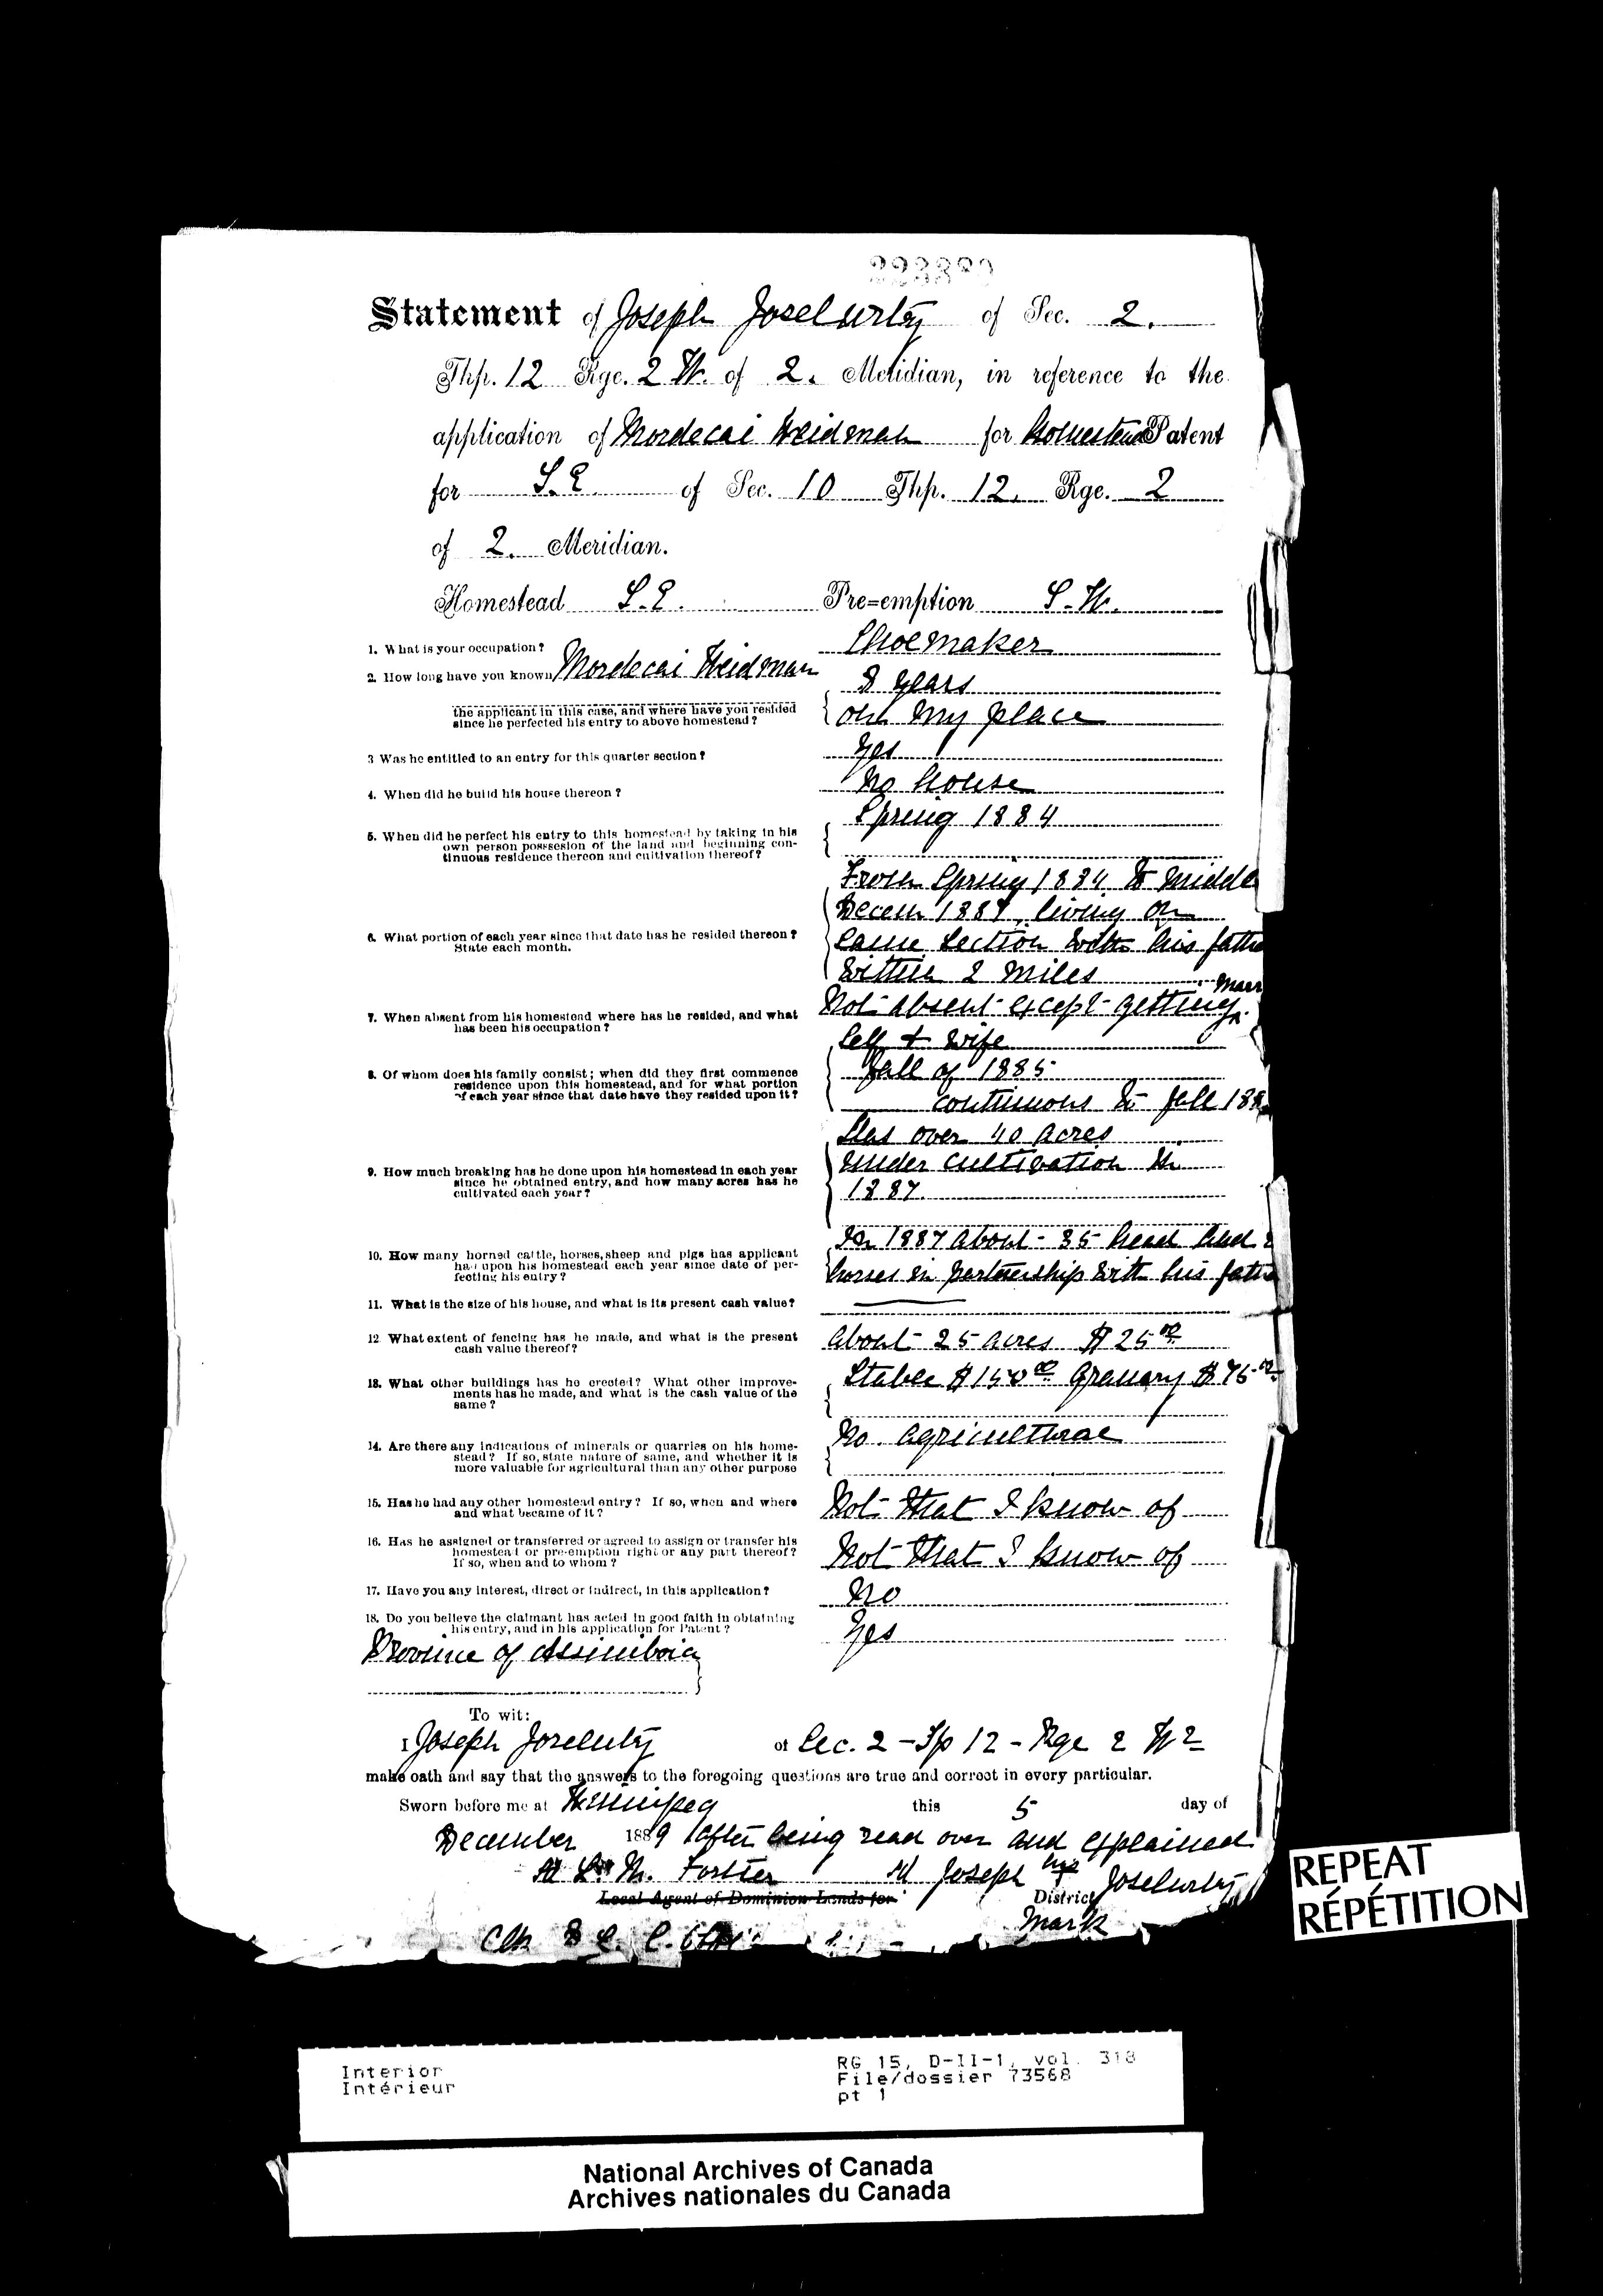 Statement of Joseph of Sec. 2.
Thp. 12 Rge. 2 W. of 2. Meridian, in reference to the
application of Mordecai Weidman for Homestead Patent
for S.E of Sec. 10 Thp. 12. Rge. 2
of 2. Meridian.
Homestead S.E. Pre-emption S.W.
1. What is your occupation? Shoemaker
2. How long have you known Mordecai Weidman 8 Years
the applicant in this case, and where have you resided since he perfected his entry to above homestead? on my place
3 Was he entitled to an entry for this quarter section? Yes
4. When did he build his house thereon? No house
5. When did he perfect his entry to this homestead by taking in his Spring 1884
own person possesion of the land and beginning con-
tinuous residence thereon and cultivation thereof?
From Spring 1884 to middle
Decem 1887, living on
6. What portion of each year since that date has he resided thereon? same section with his fathe
State each month. within 2 miles
7. When absent from his homestead where has he resided, and what Not absent except getting marr
has been his occupation?
Self & wife
8. Of whom does his family consist; when did they first commence Fall of 1885
residence upon this homestead, and for what portion
of each year since that date have they resided upon it? continuous to fall 188
Has over 40 acres
9. How much breaking has he done upon his homestead in each year under cultivation in
since he obtained entry, and how many acres has he 1887.
cultivated each year?
In 1887 about 35 head and
10. How many horned cattle, horses, sheep and pigs has applicant
had upon his homestead each year since date of per- horses in partnership with his fathe
fecting his entry?
11. What is the size of his house, and what is its present cash value?
12. What extent of fencing has he made, and what is the present About 25 acres $25.00
cash value thereof?
13. What other buildings has he erected? What other improve- Stable $150.00 Granary $75.00
ments has he made, and what is the cash value of the
same?
14. Are there any indications of minerals or quarries on his home- No. Agricultural
stead? If so, state nature of same, and whether it is
more valuable for agricultural than any other purpose
15. Has he had any other homestead entry? If so, when and where Not that I know of
and what became of it?
16. Has he assigned or transferred or agreed to assign or transfer his
homestead or pre-emption right or any part thereof? Not that I know of
If so, when and to whom?
17. Have you any interest, direct or indirect, in this application? No
18. Do you believe the claimant has acted in good faith in obtaining
his entry, and in his application for Patent? Yes
Province of Assiniboia
To wit:
I Joseph of Sec. 2 - Tp 12 - Rge 2 W 2
make oath and say that the answers to the foregoing questions are true and correct in every particular.
Sworn before me at Winnipeg this 5 day of
December 1889 after being read over and explained
Joseph his
Local Agent of Dominion Lands for District
mark
REPEAT
RÉPÉTITION
Interior
Intérieur
RG 15, D-II-1, vol. 318
File/dossier 73568
pt 1
National Archives of Canada
Archives nationales du Canada